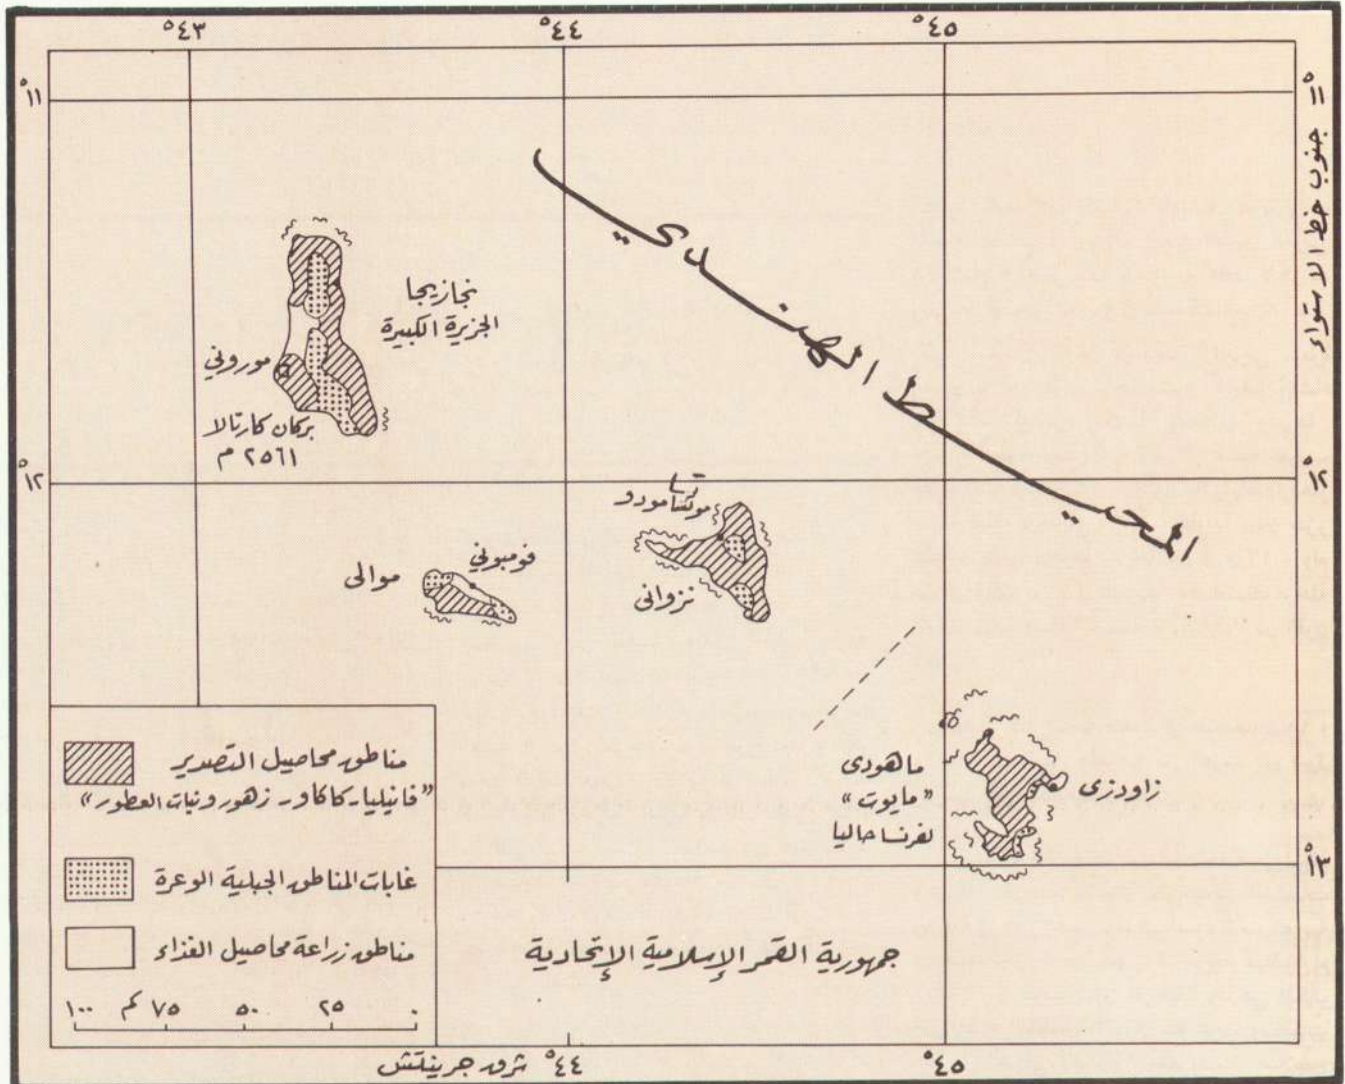 °٤٣
°٤٤
°٤٥
°١١
°١١ جنوب خط الاستواء
المحيط الهندي
نجازيجا
الجزيرة الكبيرة
موروني
بركان كارتالا
٢٥٦١ م
°١٢
°١٢
موتسامودو
فومبوني
موالى
نزوانى
ماهودى
"مايوت"
لفرنسا حاليا
زاودزى
°١٣
مناطق محاصيل التصدير
"فانيليا - كاكاو - زهور ونبات العطور"
غابات المناطق الجبلية الوعرة
مناطق زراعة محاصيل الغذاء
١٠٠ ٧٥ كم ٥٠ ٢٥ ٠
جمهورية القمر الإسلامية الإتحادية
°٤٤ شرق جرينتش
°٤٥